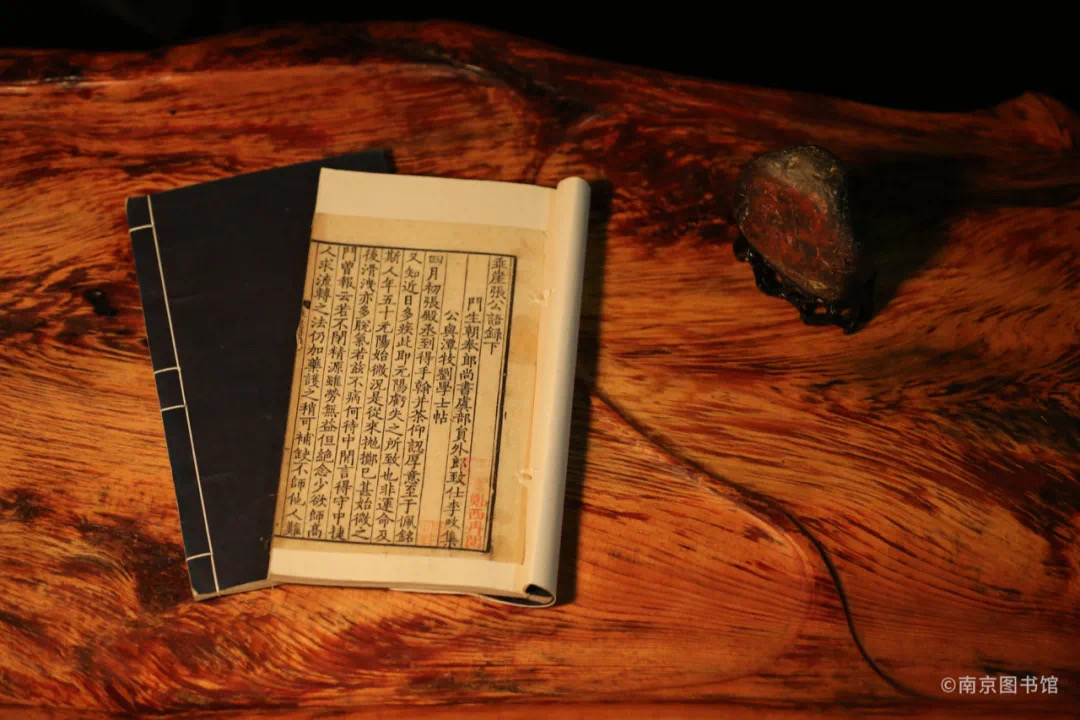 乖崖張公語錄下
門生朝奉郎尚書虞部員外郎致仕李畋集
公與潭牧劉學士帖
四月初張殿丞到得手翰并茶仰認厚意至于佩銘
又知近日多疾此即元陽虧失之所致也非運命及
斯人年五十元陽始微況是從來拋擲已甚始微之
後滑洩亦多脫橐若兹不病何待中閒言得守中揵
門曾報云若不閉精源雖勞無益但絶念少欲師高
人來流轉之法仍加藥護之稍可補缺不師仙人難
©南京图书馆